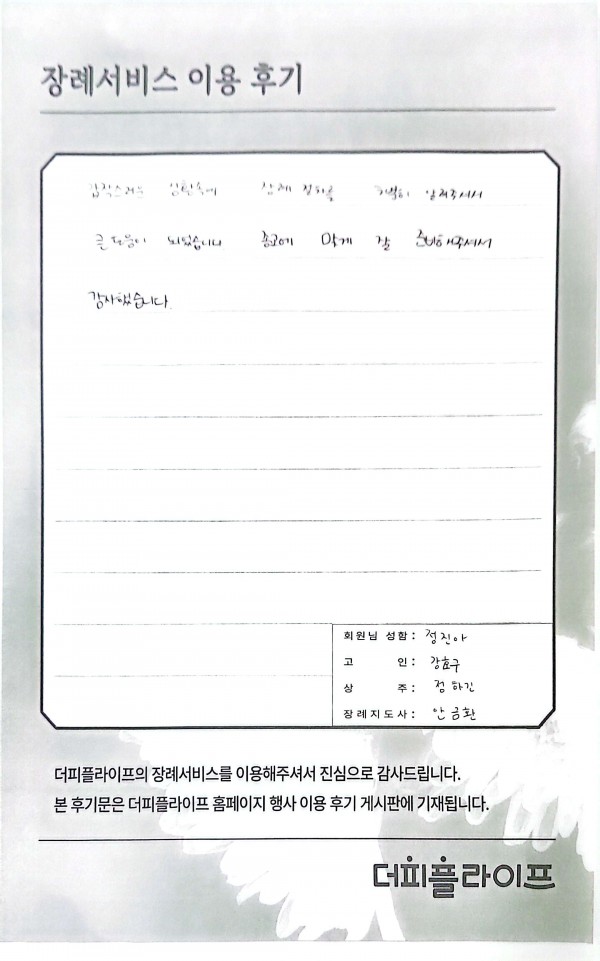 장례서비스 이용 후기
갑작스러운 상황속에 장례 절차를 정확히 알려주셔서
큰 도움이 되었습니다 종교에 맞게 잘 준비해주셔서
감사했습니다.
회원님 성함 : 정진아
고 인 : 강효구
상 주 : 정하긴
장례지도사 : 안금환
더피플라이프의 장례서비스를 이용해주셔서 진심으로 감사드립니다.
본 후기문은 더피플라이프 홈페이지 행사 이용 후기 게시판에 기재됩니다.
더피플라이프